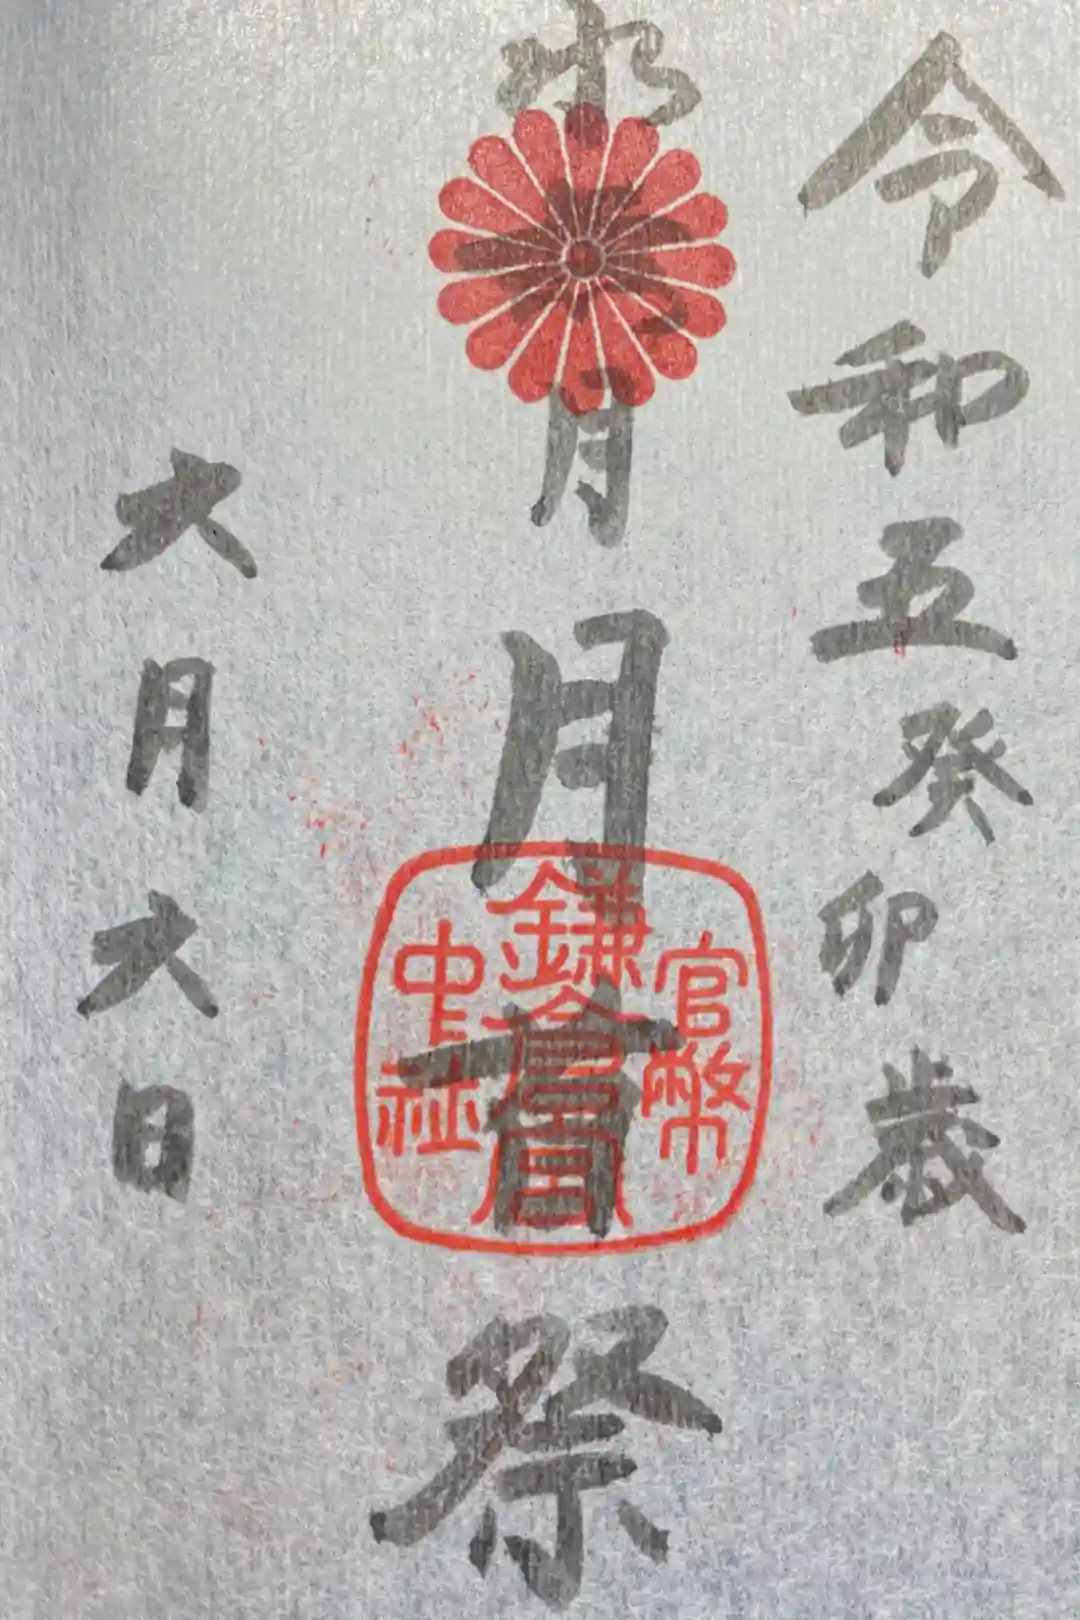 令和五癸卯歳
水無月
月首祭
六月六日
官幣
鎌倉宮
中社